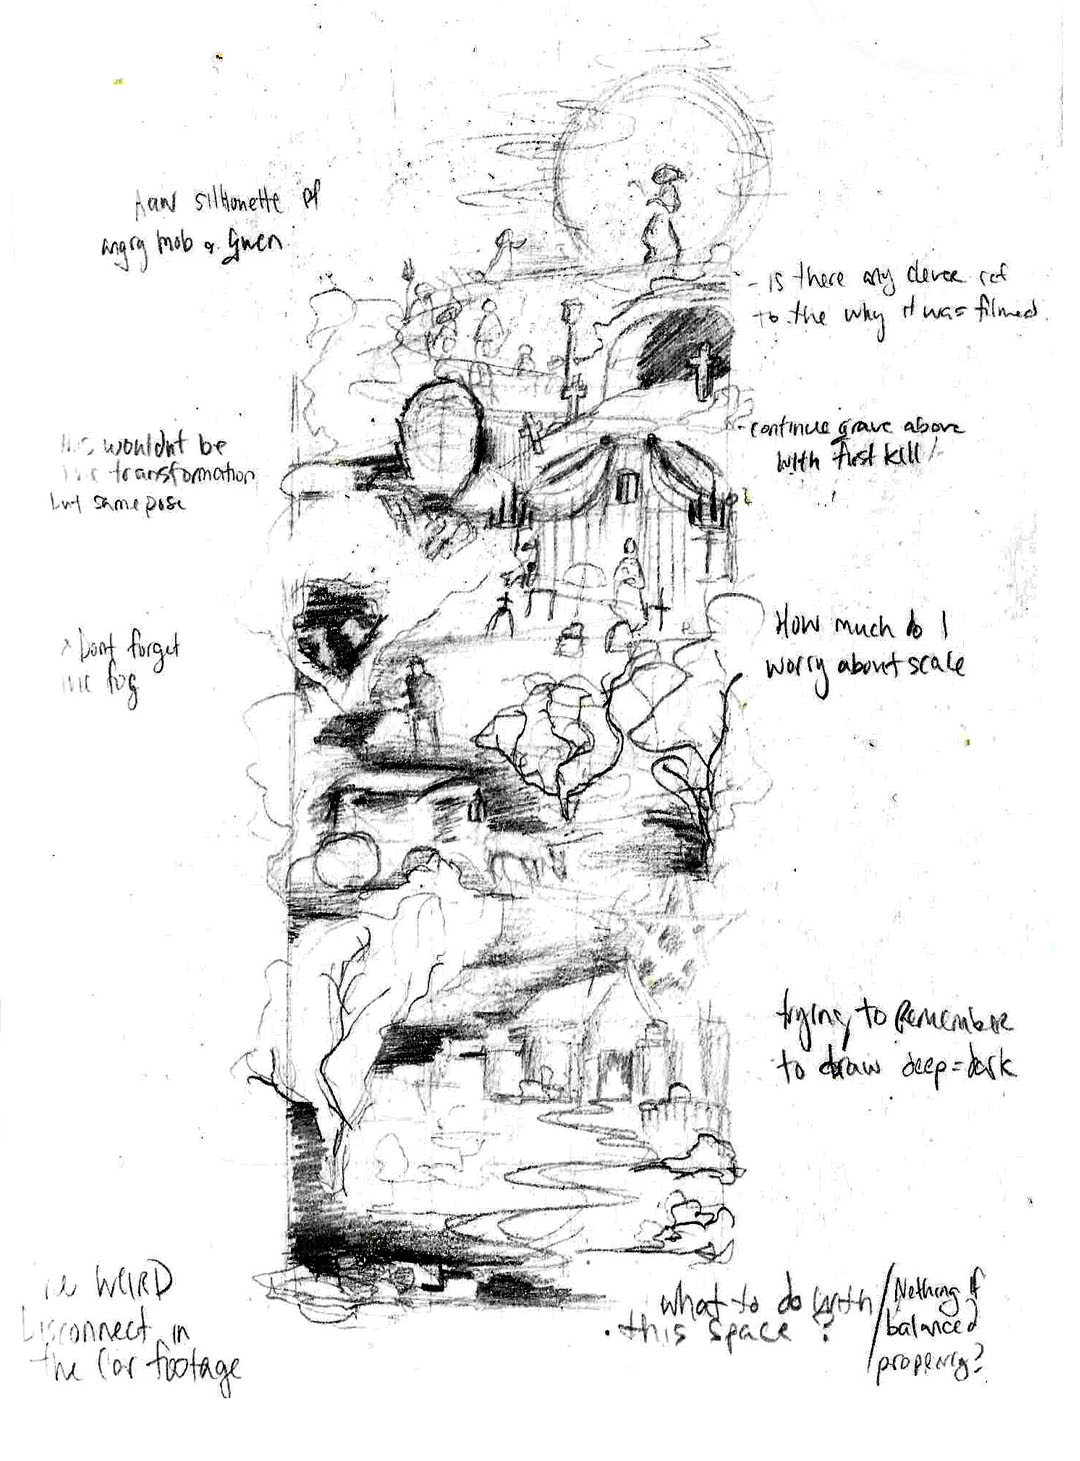 silhouette of
angry mob & Gwen
- is there any clever ref
to the why it was filmed
wouldnt be
transformation
but same pose
- continue grave above
with first kill!
Dont forget
the fog
How much do I
worry about scale
trying to remember
to draw deep = dark
WEIRD
Disconnect in
the car footage
what to do with
this space?
/ Nothing if
balanced
properly?